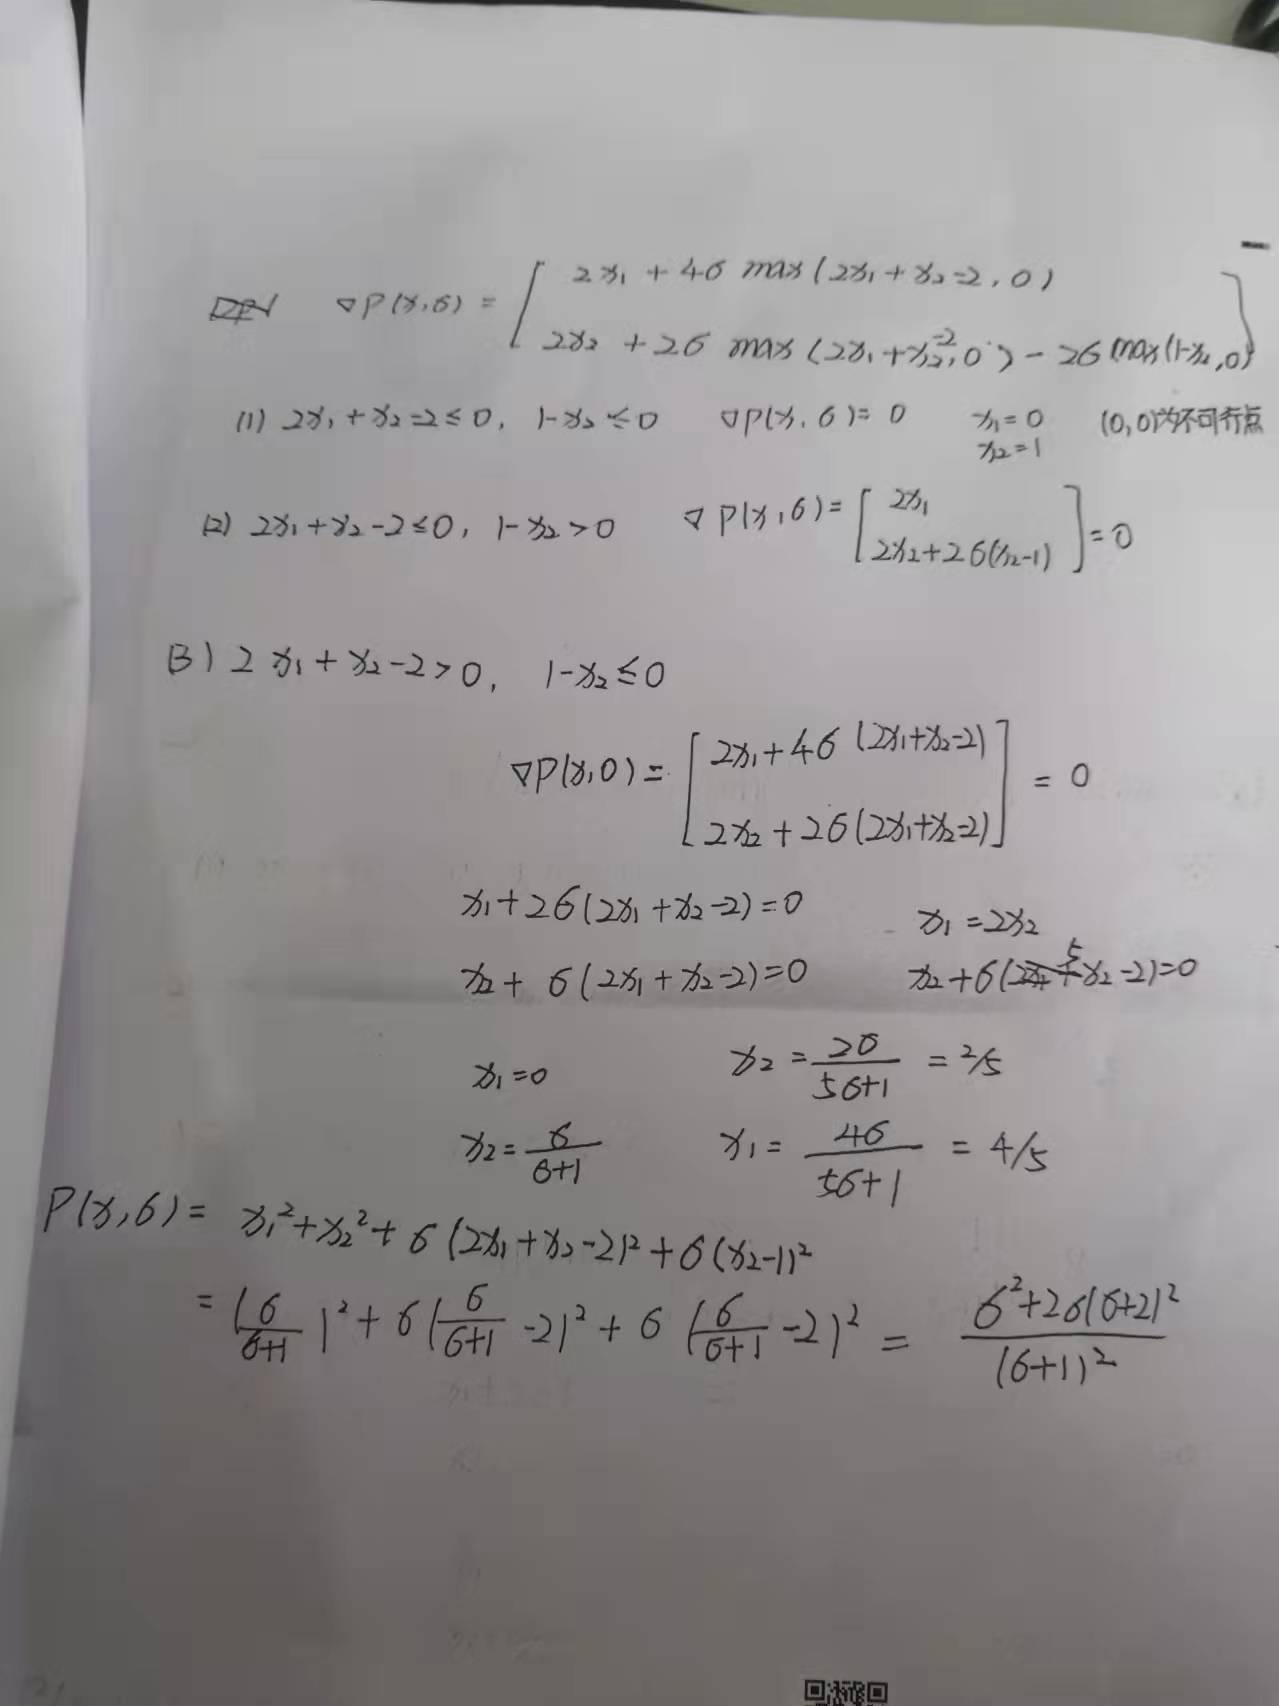 ∇P(x,σ) = [ 2x₁ + 4σ max(2x₁ + x₂ - 2, 0)
2x₂ + 2σ max(2x₁ + x₂ - 2, 0) - 2σ max(1-x₂, 0) ]
(1) 2x₁ + x₂ - 2 ≤ 0, 1-x₂ ≤ 0 ∇P(x,σ) = 0 x₁ = 0 (0,0)为不可行点
x₂ = 1
(2) 2x₁ + x₂ - 2 ≤ 0, 1-x₂ > 0 ∇P(x,σ) = [ 2x₁
2x₂ + 2σ(x₂-1) ] = 0
(3) 2x₁ + x₂ - 2 > 0, 1-x₂ ≤ 0
∇P(x,0) = [ 2x₁ + 4σ(2x₁+x₂-2)
2x₂ + 2σ(2x₁+x₂-2) ] = 0
x₁ + 2σ(2x₁ + x₂ - 2) = 0 x₁ = 2x₂
x₂ + σ(2x₁ + x₂ - 2) = 0 x₂ + σ(5x₂ - 2) = 0
x₁ = 0 x₂ = 2σ/(5σ+1) = 2/5
x₂ = σ/(σ+1) x₁ = 4σ/(5σ+1) = 4/5
P(x,σ) = x₁² + x₂² + σ(2x₁ + x₂ - 2)² + σ(x₂-1)²
= (σ/(σ+1))² + σ(σ/(σ+1) - 2)² + σ(σ/(σ+1) - 2)² = (σ² + 2σ(σ+2)²)/(σ+1)²